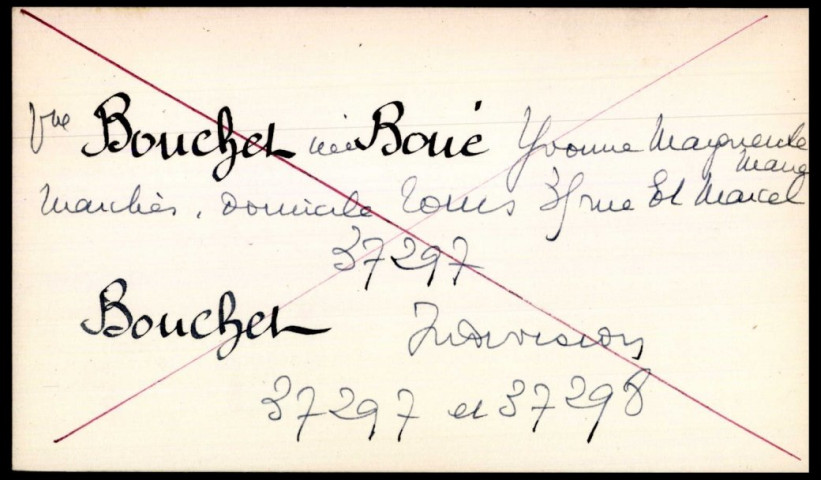 Vve Bouchet née Boué Yvonne Marguerite
Marchés, domicile Tours rue St Marcel
37297
Bouchet Indivision
37297 et 37298